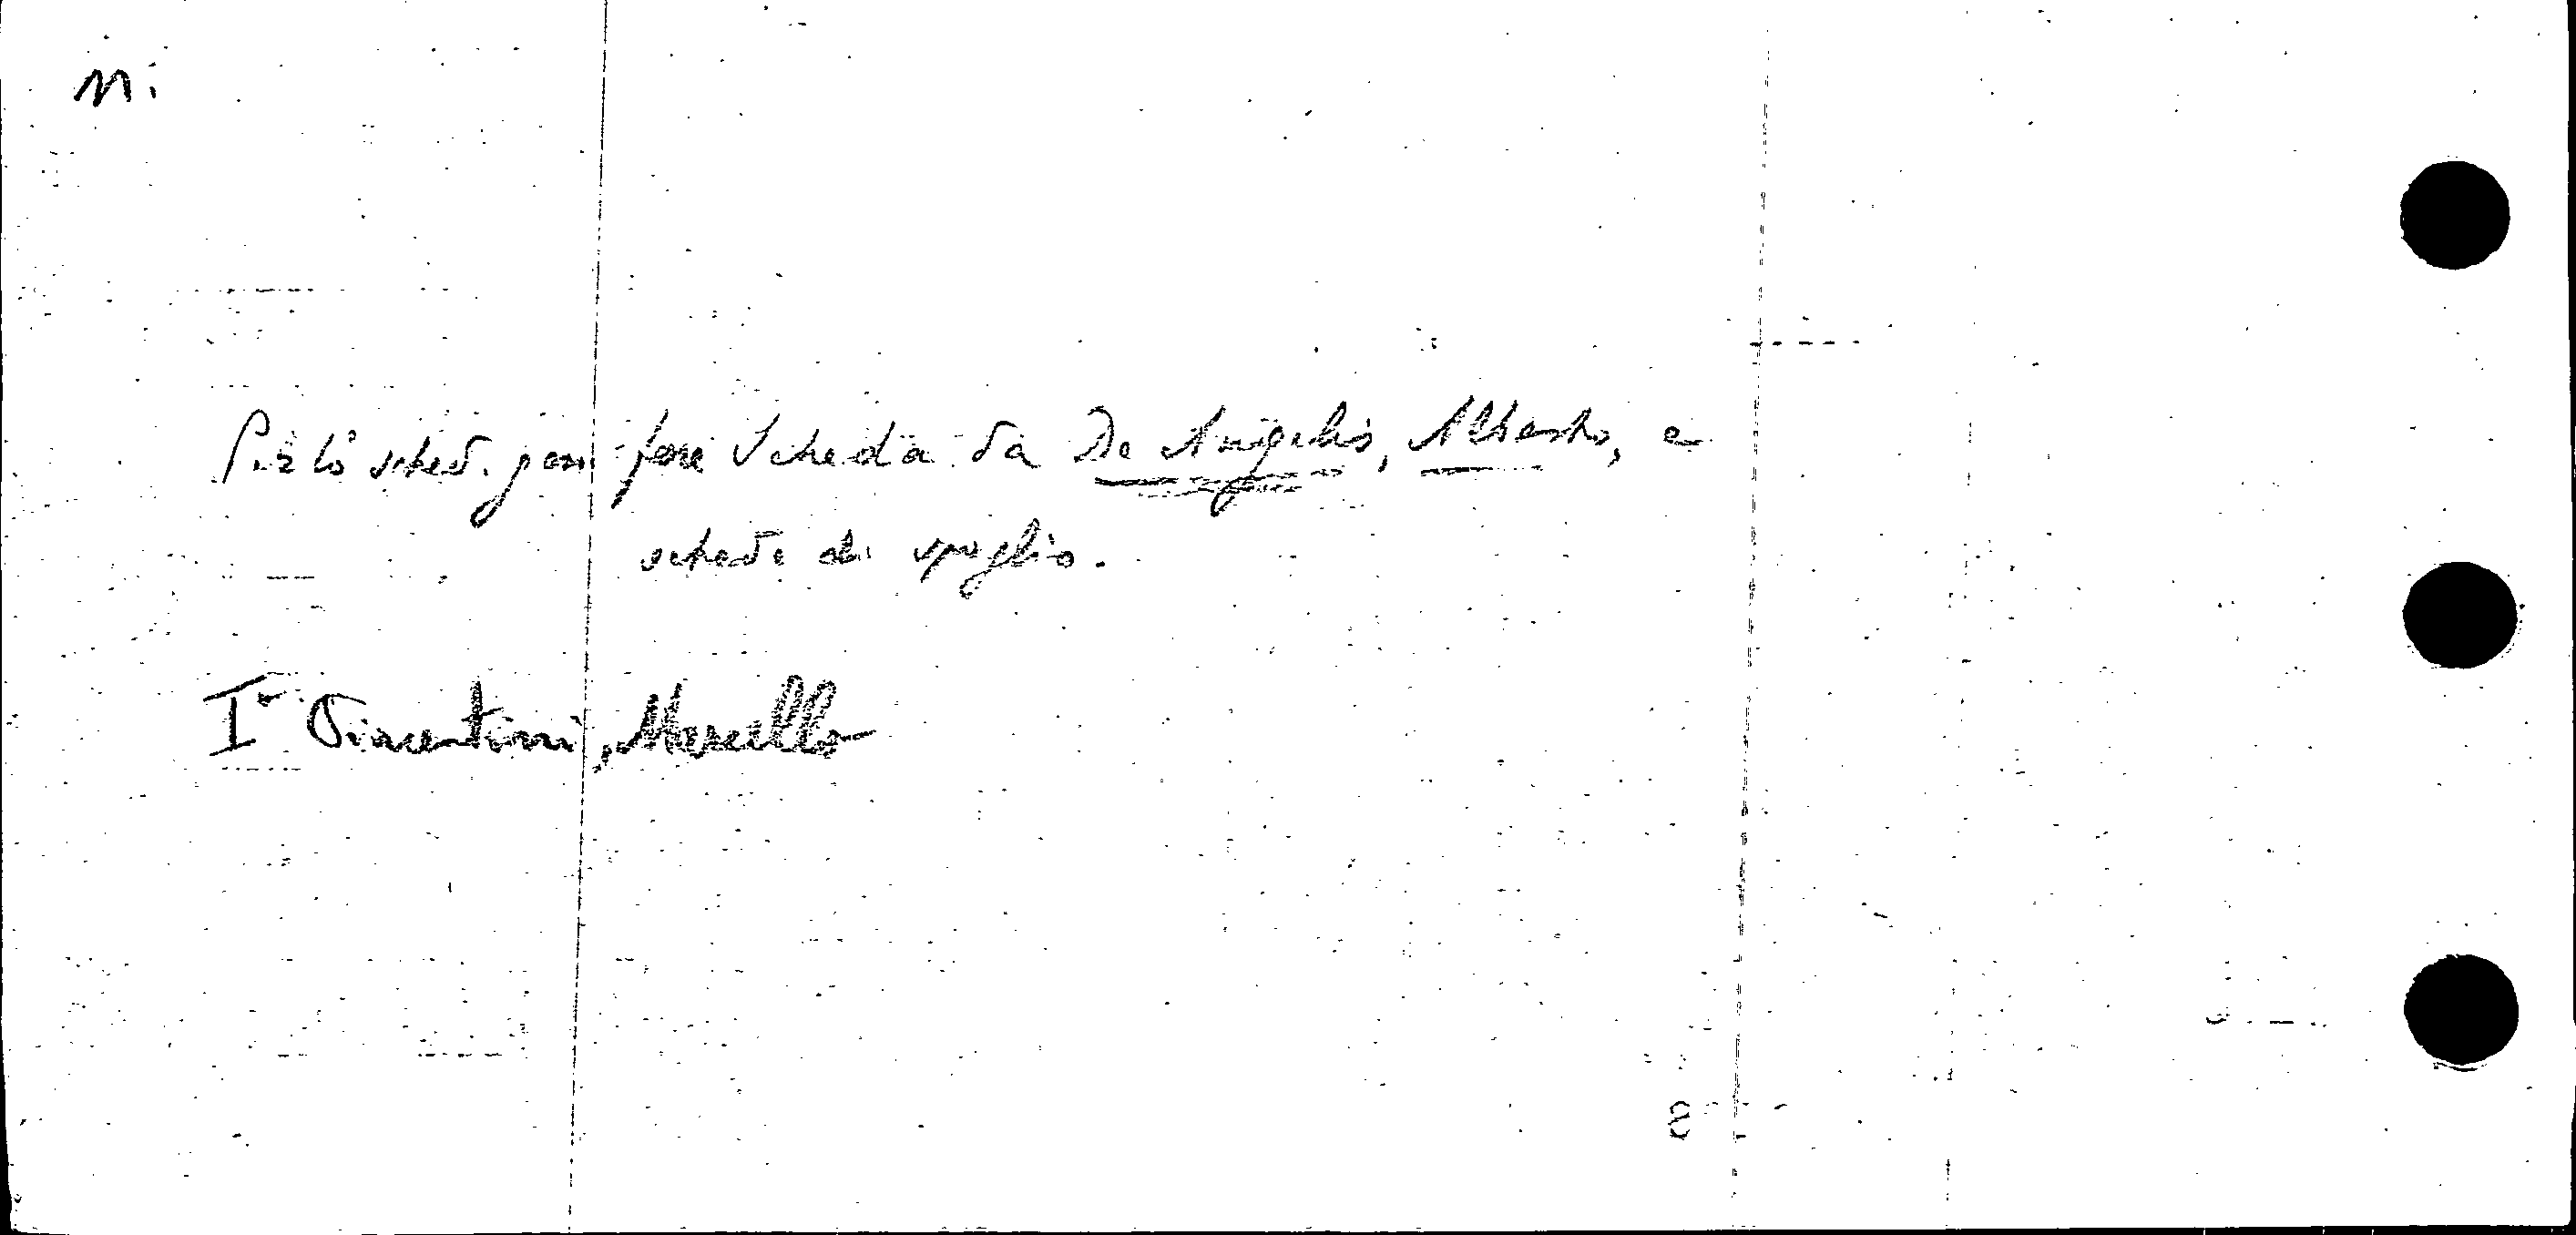 n:
sched. gen. fare scheda da De Angelis, Alberto, e
schede di spoglio.
I° Piacentini, Marcello
8